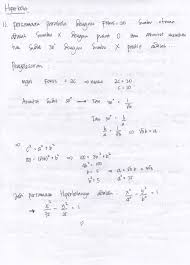 Hiperbola
1). persamaan parabola dengan Fokus = 20 Sumbu utama
adalah Sumbu X dengan pusat 0 dan asimtot membentuk
sudut 30° dengan Sumbu X positif adalah
Penyelesaian :
Fokus = 20 → maka 2c = 20
c = 10
Asimtot Sudut 30° → Tan 30° = b/a
1/√3 = b/a
b/a = 1/√3 ⇒ √3 b = a
⇒ c² = a² + b²
100 = (√3 b)² + b² → 100 = 3b² + b²
100 = 4b²
b = 5 → a = √3 b
a = 5√3
Jadi persamaan Hiperbolanya adalah : x²/a² - y²/b² = 1
→ x²/75 - y²/25 = 1